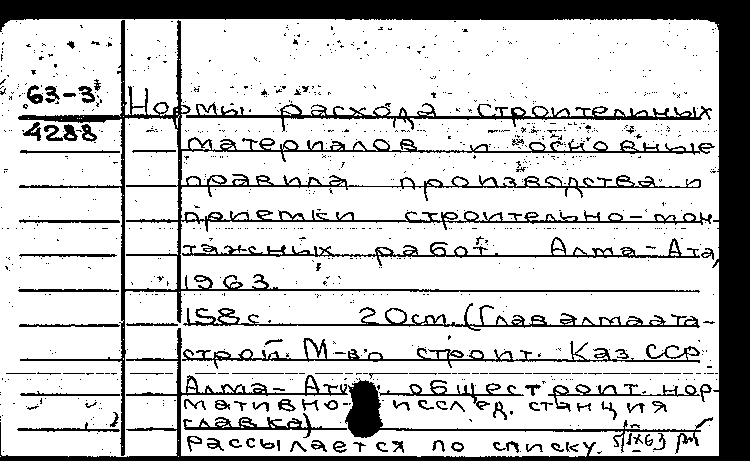 63-3
4288
Нормы расхода строительных
материалов и основные
правила производства и
приемки строительно-мон-
тажных работ. Алма-Ата,
1963.
158с. 20см. (Главалмаата-
строй. М-во строит. Каз.ССР
Алма- общестроит. нор-
мативно- исслед. станция
главка)
Рассылается по списку.